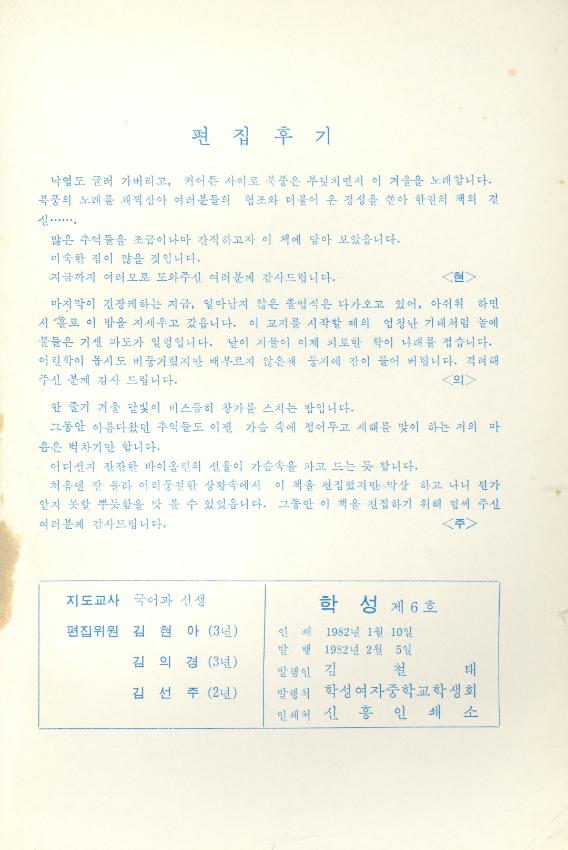 편집후기
낙엽도 굴러 가버리고, 커어튼 사이로 북풍은 부딪치면서 이 겨울을 노래합니다.
북풍의 노래를 채찍삼아 여러분들의 협조와 더불어 온 정성을 쏟아 한권의 책의 결
실…….
많은 추억들을 조금이나마 간직하고자 이 책에 담아 보았읍니다.
미숙한 점이 많을 것입니다.
지금까지 여러모로 도와주신 여러분께 감사드립니다. <현>
마지막이 긴장케하는 지금, 얼마남지 않은 졸업식은 다가오고 있어, 아쉬워 하면
서 홀로 이 밤을 지새우고 갔읍니다. 이 교지를 시작할 때의 엄청난 기대처럼 놀에
물들은 거센 파도가 일렁입니다. 날이 저물어 이제 피로한 학이 나래를 접습니다.
어린학이 몹시도 비둥거렸지만 배부르지 않은채 둥지에 잠이 들어 버립니다. 격려해
주신 분께 감사 드립니다. <의>
한 줄기 겨울 달빛이 비스듬히 창가를 스치는 밤입니다.
그동안 아름다웠던 추억들도 이젠 가슴 속에 접어두고 새해를 맞이 하는 저의 마
음은 벅차기만 합니다.
어디선지 잔잔한 바이올린의 선율이 가슴속을 파고 드는 듯 합니다.
처음엔 잘 몰라 어리둥절한 상황속에서 이 책을 편집했지만 막상 하고 나니 뭔가
알지 못할 뿌듯함을 맛 볼 수 있었읍니다. 그동안 이 책을 편집하기 위해 힘써 주신
여러분께 감사드립니다. <주>
지도교사 국어과 선생
편집위원 김현아 (3년)
김의경 (3년)
김선주 (2년)
학성 제6호
인쇄 1982년 1월 10일
발행 1982년 2월 5일
발행인 김철태
발행처 학성여자중학교학생회
인쇄처 신흥인쇄소